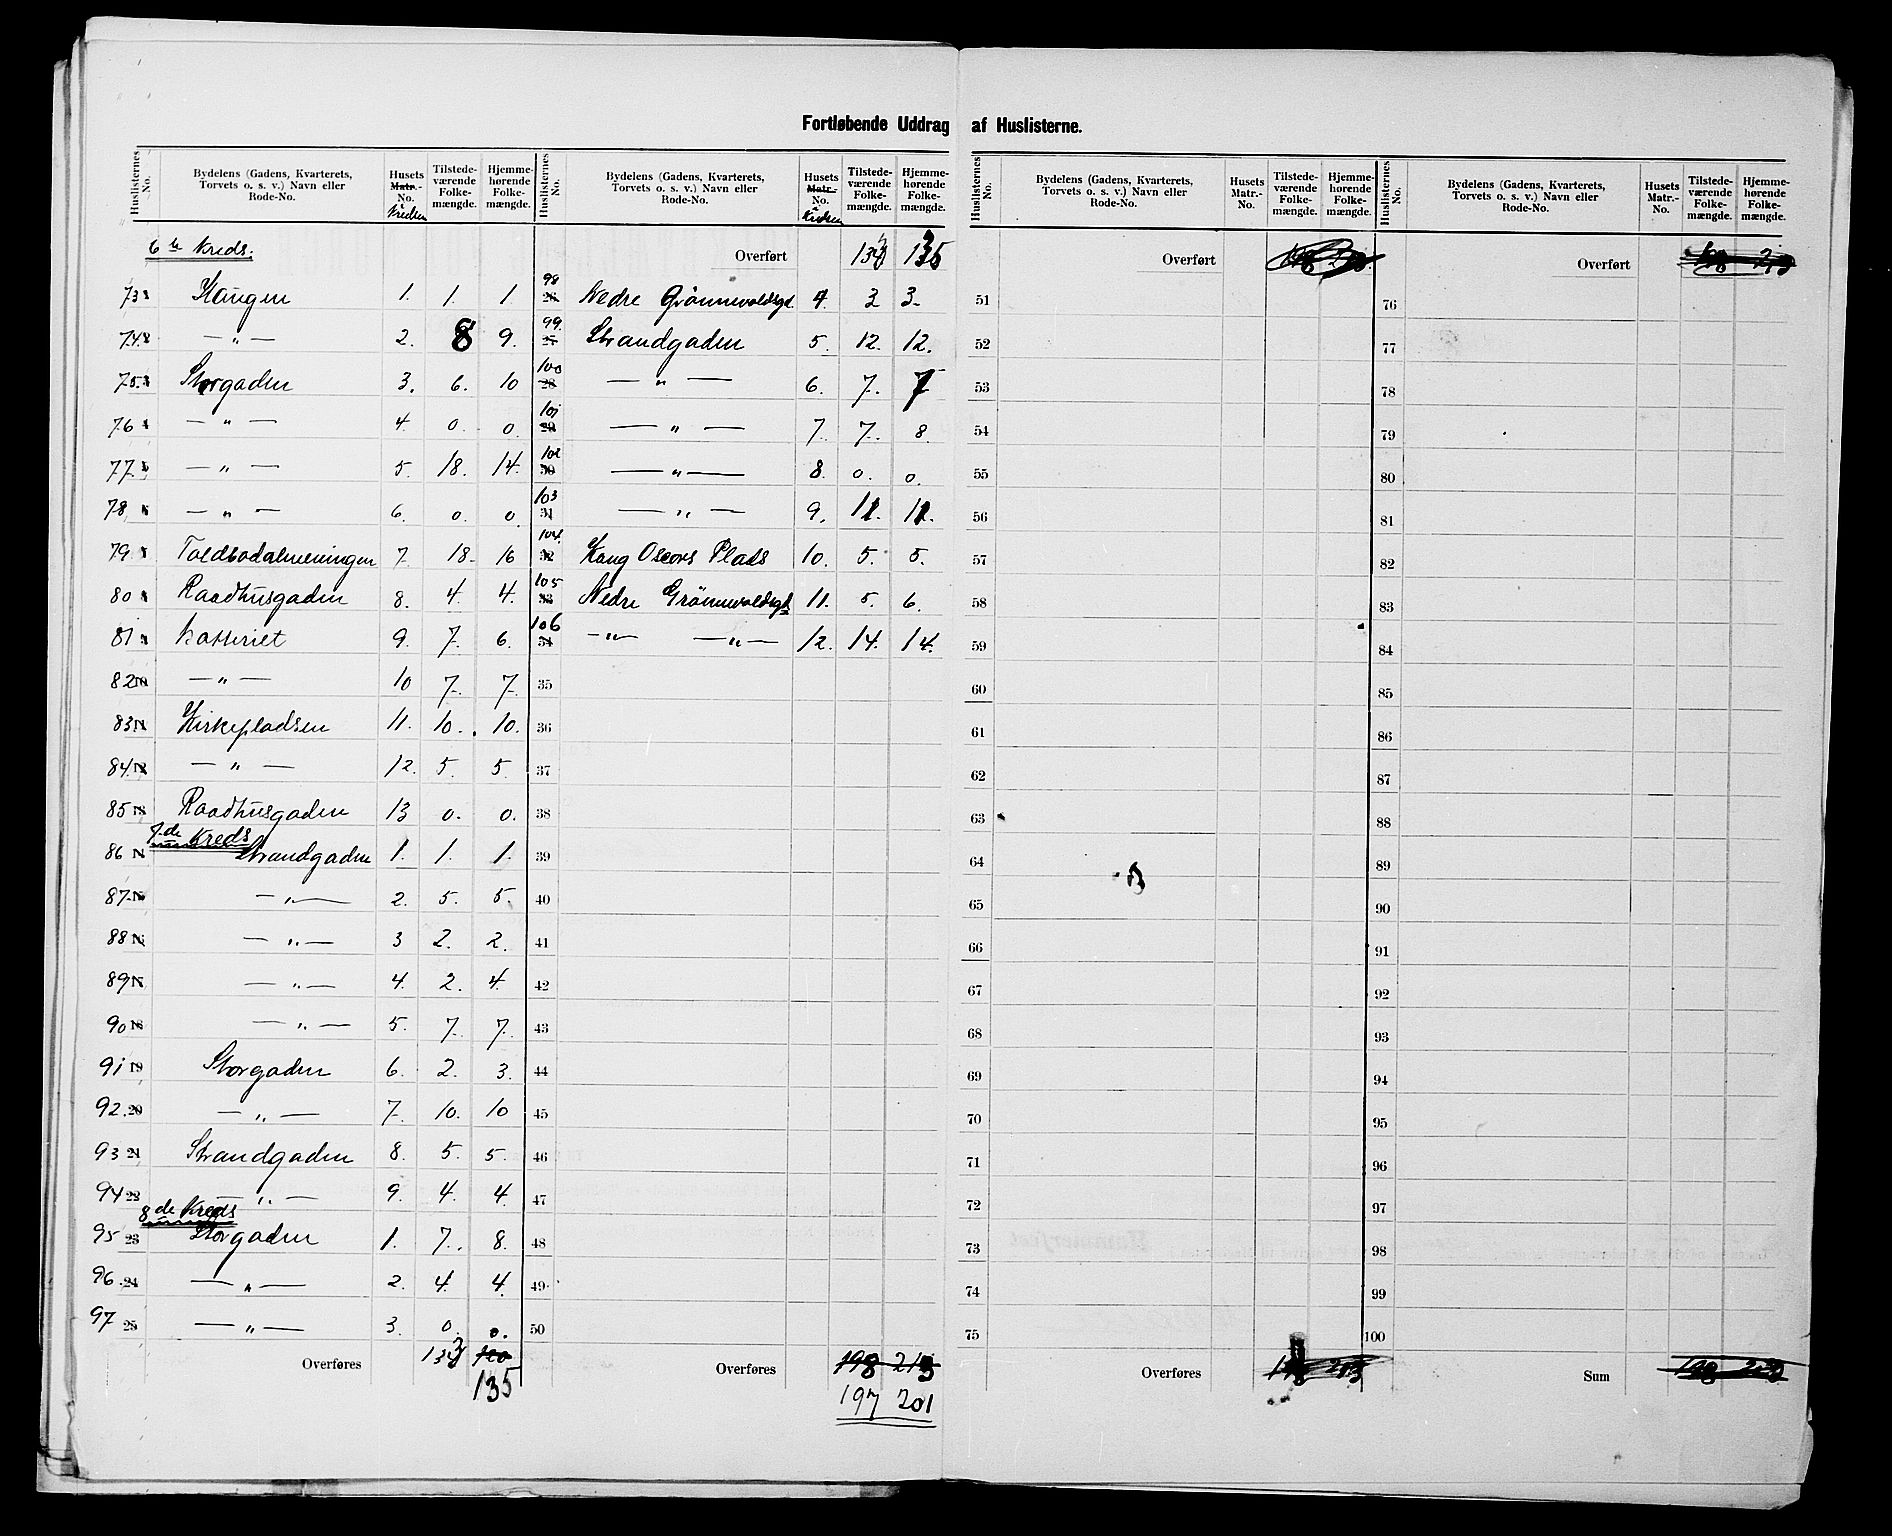 Fortløbende Uddrag af Huslisterne.
Huslisternes No. Bydelens (Gadens, Kvarterets, Torvets o. s. v.) Navn eller Rode-No. Husets Matr.-No. i Kredsen Tilstedeværende Folkemængde. Hjemmehørende Folkemængde.
Huslisternes No. Bydelens (Gadens, Kvarterets, Torvets o. s. v.) Navn eller Rode-No. Husets Matr.-No. i Kredsen Tilstedeværende Folkemængde. Hjemmehørende Folkemængde.
Huslisternes No. Bydelens (Gadens, Kvarterets, Torvets o. s. v.) Navn eller Rode-No. Husets Matr.-No. Tilstedeværende Folkemængde. Hjemmehørende Folkemængde.
Huslisternes No. Bydelens (Gadens, Kvarterets, Torvets o. s. v.) Navn eller Rode-No. Husets Matr.-No. Tilstedeværende Folkemængde. Hjemmehørende Folkemængde.
6te Kreds:
73 Haugen 1. 1. 1.
74 — " — 2. 8 9.
75. Storgaden 3. 6. 10
76 — " — 4. 0. 0.
77. — " — 5. 18. 14.
78 — " — 6. 0. 0
79 Toldbodalmeningen 7. 18. 16
80 Raadhusgaden 8. 4. 4.
81 Batteriet 9. 7. 6.
82 — " — 10 7. 7.
83 Kirkepladsen 11. 10. 10.
84 — " — 12. 5. 5.
85 Raadhusgaden 13 0. 0.
7de Kreds
86 Strandgaden 1. 1. 1.
87 — " — 2. 5. 5.
88 — " — 3 2. 2.
89 — " — 4. 2. 4.
90 — " — 5. 7. 7.
91 19 Storgaden 6. 2. 3.
92. 20 — " — 7. 10. 10
93 21 Strandgaden 8. 5. 5.
94 22 — " — 9. 4. 4.
8de Kreds
95 23 Storgaden 1. 7. 8.
96. 24 — " — 2. 4. 4.
97 25 — " — 3. 0. 0.
Overføres 133
135
Overført 133 135
98 26 Nedre Grønnevoldsgt. 4. 3 3.
99. 27 Strandgaden 5. 12. 12.
100 28 — " — 6. 7. 7
101 29 — " — 7. 7. 8.
102 30 — " — 8. 0. 0.
103 31 — " — 9. 11. 11.
104. 32 Kong Oscars Plads 10. 5. 5.
105 33 Nedre Grønnevoldsgt. 11. 5. 6.
106 34 — " — — " — 12. 14. 14.
35
36
37
38
39
40
41
42
43
44
45
46
47
48
49
50
Overføres 198 213
197 201
Overført
51
52
53
54
55
56
57
58
59
60
61
62
63
64
65
66
67
68
69
70
71
72
73
74
75
Overføres
Overført
76
77
78
79
80
81
82
83
84
85
86
87
88
89
90
91
92
93
94
95
96
97
98
99
100
Sum